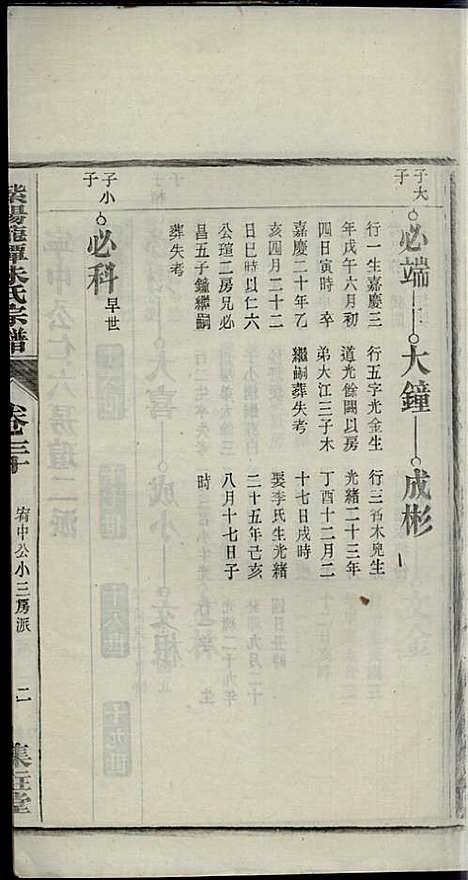 大子
必端——大鐘——成彬
行一生嘉慶三
年戌午六月初
四日寅時卒
嘉慶二十年乙
亥四月二十二
日巳時以仁六
公瑄二房兄必
昌五子鐘繼嗣
葬失考
行五字光金生
道光餘闕以房
弟大江三子木
繼嗣葬失考
行三名木兒生
光緒二十三年
丁酉十二月二
十七日戌時
娶李氏生光緒
二十五年己亥
八月十七日子
時
小子
必科早世
紫陽龍潭朱氏宗譜
卷三十
宥中公小三房派
二